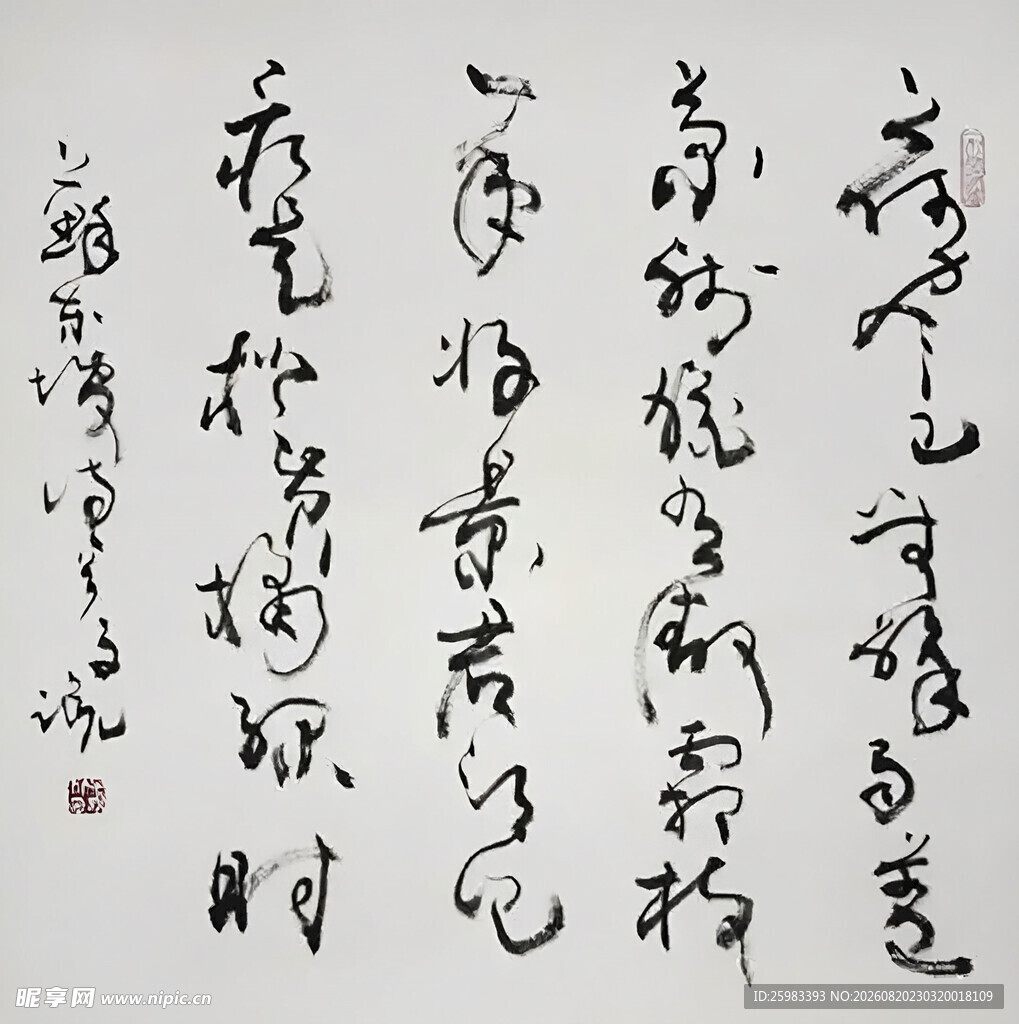 荷尽已无擎雨盖
菊残犹有傲霜枝
一年好景君须记
最是橙黄橘绿时
蘇东坡诗
昵享网 www.nipic.cn
ID:25983393 NO:20260820230320018109